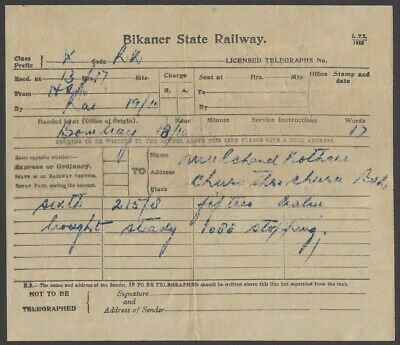 Bikaner State Railway.
L.T.I.
Class X Code
Prefix
LICENSED TELEGRAPHS No.
Recd. at 13 Hrs. 17 Mts.
Charge
Sent at Hrs. Mts.
Office Stamp and date
From
R. A.
To
By 19/10
By
Handed in at (Office of Origin).
Date
Hour
Minute
Service Instructions
Words
Bombay 18/10 17
NOTHING TO BE WRITTEN BY THE SENDER ABOVE THIS LINE PLEASE GIVE A FULL ADDRESS.
Enter opposite whether—
Express or Ordinary.
State or on Railway Service.
Reply Paid, stating the amount.
TO
Name Mulchand Kothari
Address Churu
Place
sixth 215/8 fifteen
bought steady stopping.
N.B.—The name and address of the Sender, IF TO BE TELEGRAPHED should be written above this line but separated from the text.
NOT TO BE
TELEGRAPHED
Signature
and
Address of Sender